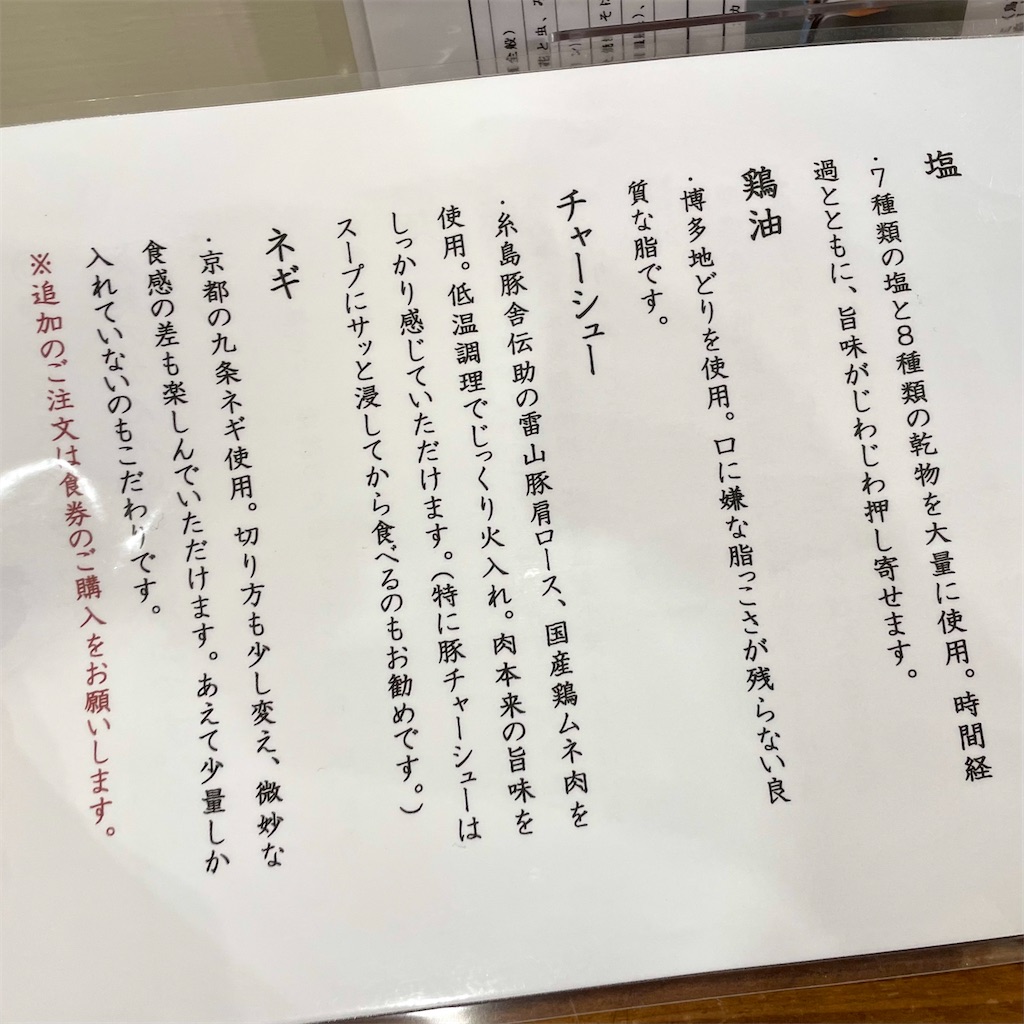 塩
・7種類の塩と8種類の乾物を大量に使用。時間経
過とともに、旨味がじわじわ押し寄せます。
鶏油
・博多地どりを使用。口に嫌な脂っこさが残らない良
質な脂です。
チャーシュー
・糸島豚舎伝助の雷山豚肩ロース、国産鶏ムネ肉を
使用。低温調理でじっくり火入れ。肉本来の旨味を
しっかり感じていただけます。(特に豚チャーシューは
スープにサッと浸してから食べるのもお勧めです。)
ネギ
・京都の九条ネギ使用。切り方も少し変え、微妙な
食感の差も楽しんでいただけます。あえて少量しか
入れていないのもこだわりです。
※追加のご注文は食券のご購入をお願いします。